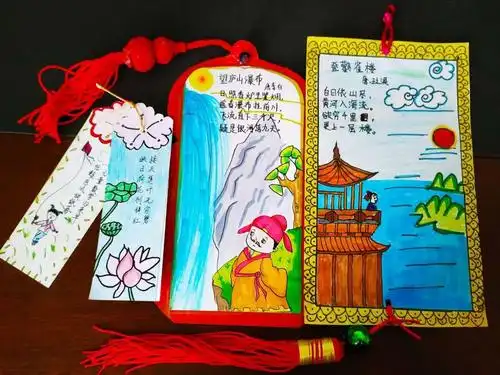 接天莲叶无穷碧
映日荷花别样红
望庐山瀑布
唐李白
日照香炉生紫烟,
遥看瀑布挂前川,
飞流直下三千尺,
疑是银河落九天。
登鹳雀楼
白日依山尽,
黄河入海流,
欲穷千里目,
更上一层楼。